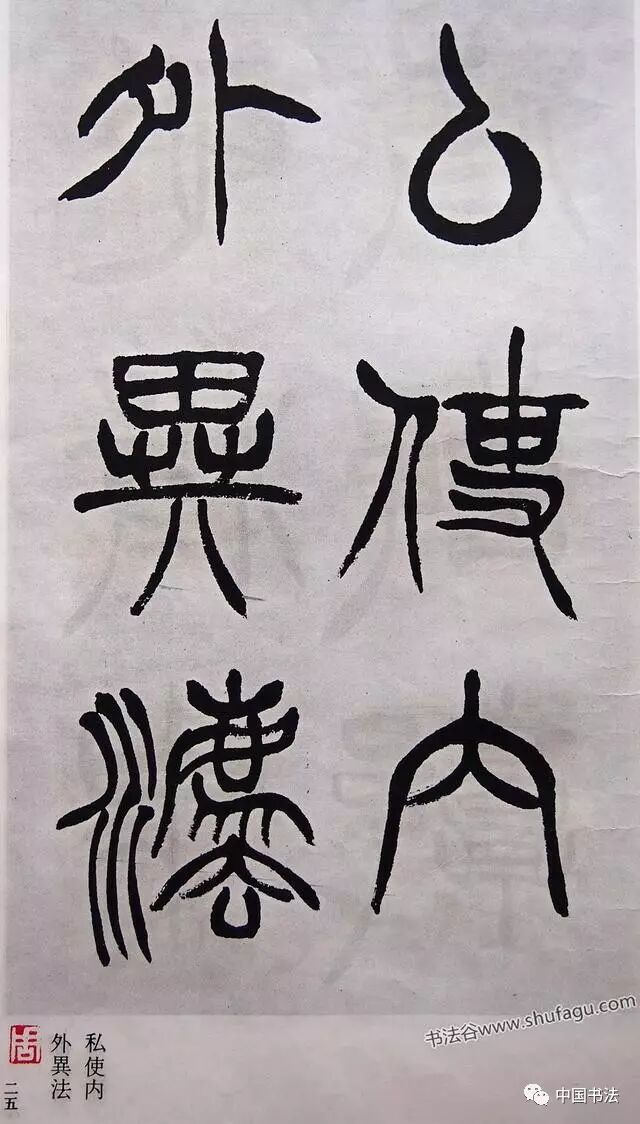 厶使内
外異灋
私使内
外異法
二五
书法谷www.shufagu.com
中国书法